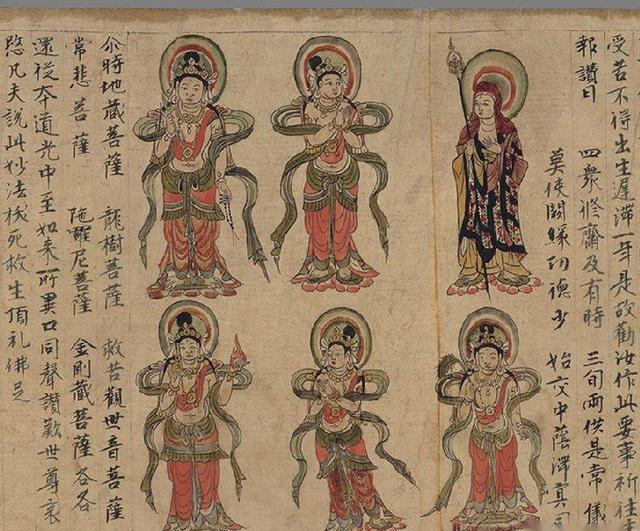 受苦不得出生遲滯一年是故勸汝作此要事祈往
報讚曰　四衆修齋及有時　三旬兩供是常儀
莫使闕緣功德少　始交中蔭滯冥司
尒時地藏菩薩　龍樹菩薩　救苦觀世音菩薩
常悲菩薩　陁羅尼菩薩　金剛藏菩薩各各
還從本道光中至如來所異口同聲讚歎世尊哀
愍凡夫說此妙法拔死救生頂礼佛足